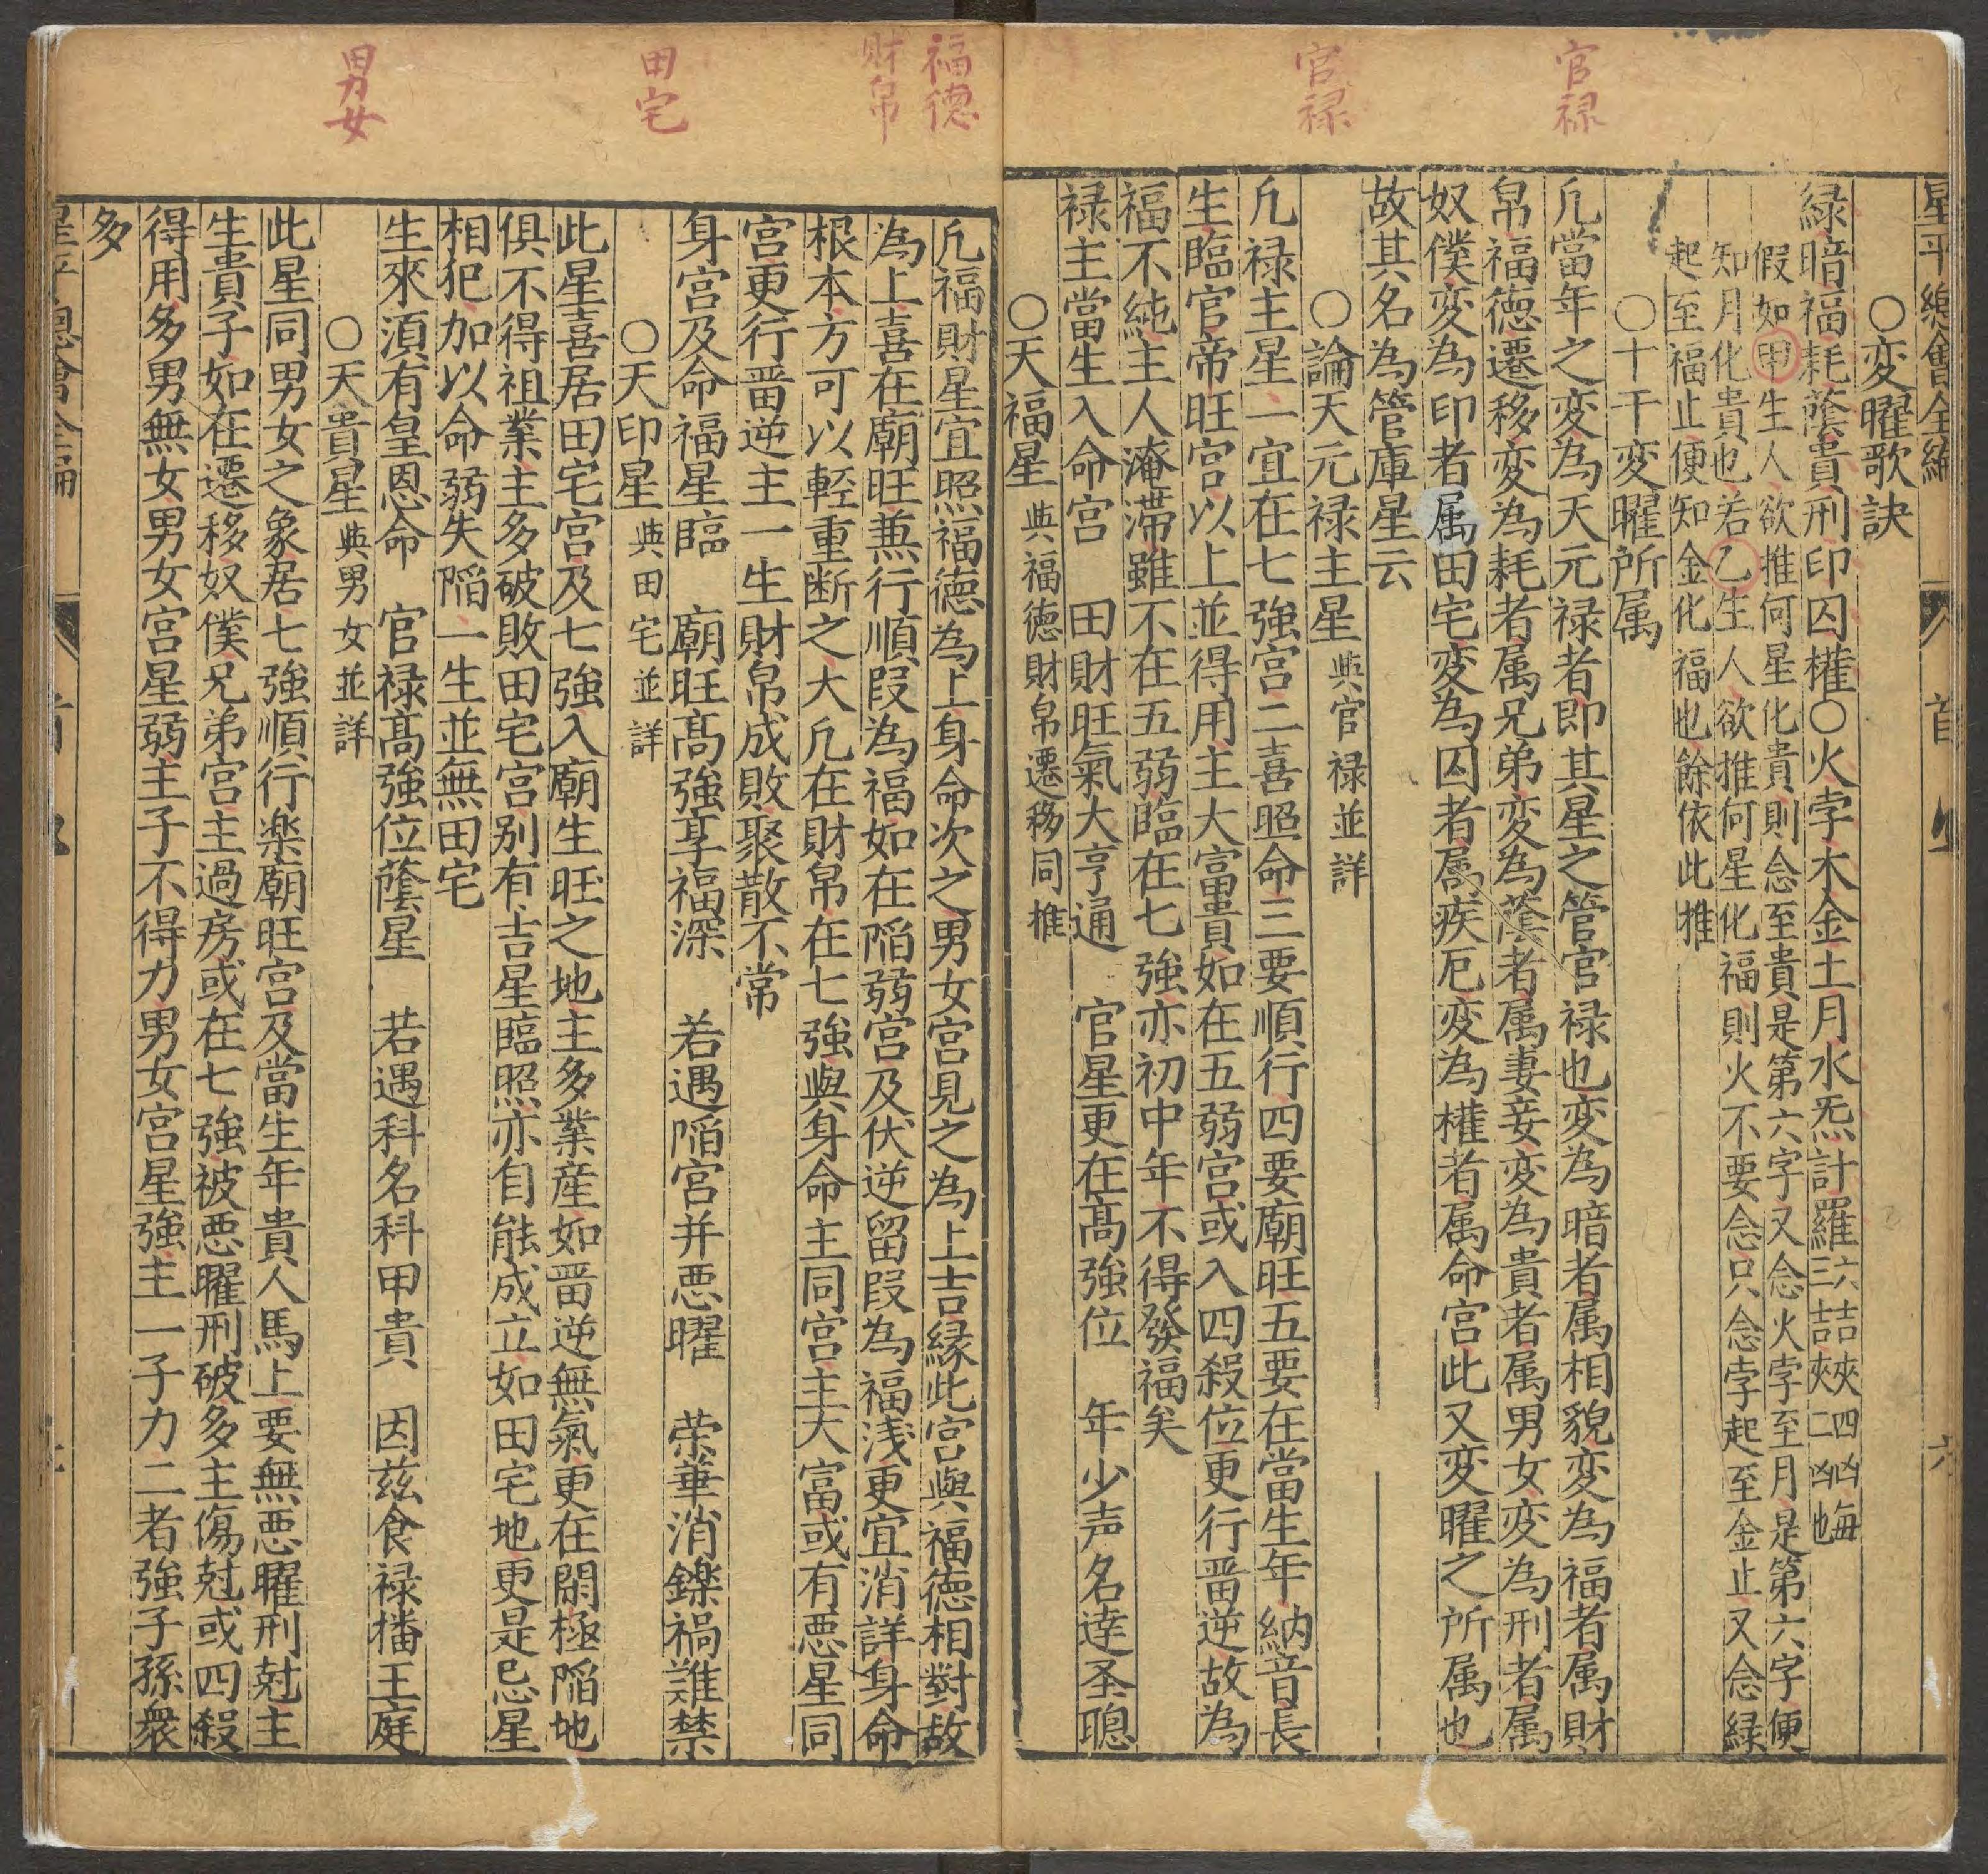 官禄
官禄
福德
財帛
田宅
男女
星平總會全編
首
六
○変曜歌訣
緑暗福耗蔭貴刑印囚權○火孛木金土月水炁計羅
假如甲生人欲推何星化貴則念至貴是第六字又念火孛至月是第六字便
知月化貴也若乙生人欲推何星化福則火不要念只念孛起至金止又念緑
起至福止便知金化福也餘依此推
○十干変曜所属
凡當年之変為天元禄者即其星之管官禄也変為暗者属相貌変為福者属財
帛福德遷移変為耗者属兄弟変為蔭者属妻妾変為貴者属男女変為刑者属
奴僕変為印者属田宅変為囚者属疾厄変為權者属命宫此又変曜之所属也
故其名為管庫星云
○論天元禄主星 與官禄並詳
凡禄主星一宜在七強宫二喜照命三要順行四要廟旺五要在當生年納音長
生臨官帝旺宫以上並得用主大富貴如在五弱宫或入四殺位更行畱逆故為
福不純主人淹滯雖不在五弱臨在七強亦初中年不得發福矣
禄主當生入命宫 田財旺氣大亨通 官星更在髙強位 年少声名達圣聰
○天福星 與福德財帛遷移同推
凡福財星宜照福德為上身命次之男女宫見之為上吉緣此宫與福德相對故
為上喜在廟旺兼行順段為福如在陥弱宫及伏逆留段為福浅更宜消詳身命
根本方可以輕重断之大凡在財帛在七強與身命主同宫主大富或有悪星同
宫更行畱逆主一生財帛成敗聚散不常
身宫及命福星臨 廟旺髙強享福深 若遇陥宫并悪曜 荣華消鑠禍誰禁
○天印星 與田宅並詳
此星喜居田宅宫及七強入廟生旺之地主多業産如畱逆無氣更在閑極陥地
俱不得祖業主多破敗田宅宫别有吉星臨照亦自能成立如田宅地更是忌星
相犯加以命弱失陥一生並無田宅
生來須有皇恩命 官禄髙強位蔭星 若遇科名科甲貴 因兹食禄播王庭
○天貴星 與男女並詳
此星同男女之象居七強順行楽廟旺宫及當生年貴人馬上要無悪曜刑尅主
生貴子如在遷移奴僕兄弟宫主過房或在七強被悪曜刑破多主傷尅或四殺
得用多男無女男女宫星弱主子不得力男女宫星強主一子力二者強子孫衆
多